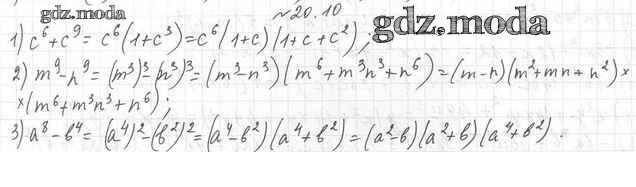 №20.10
gdz.moda
gdz.moda
1) c⁶+c⁹= c⁶(1+c³)=c⁶(1+c)(1+c+c²);
2) m⁹-n⁹= (m³)³-(n³)³=(m³-n³)(m⁶+m³n³+n⁶)=(m-n)(m²+mn+n²)×
×(m⁶+m³n³+n⁶);
3) a⁸-b⁴= (a⁴)²-(b²)²=(a⁴-b²)(a⁴+b²)=(a²-b)(a²+b)(a⁴+b²).